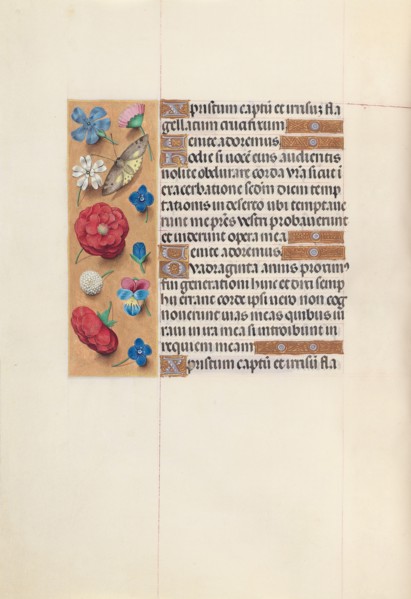 Xpristum captū et irrisuʒ fla
gellatum crucifixum
Uenite adoremus
Hodie si uocē eius audieritis
nolite obdurare corda vr̄a sicut i
exacerbatione sedm̄ diem temp
tationis in deserto ubi temptaue
runt me pr̄es vestri probauerunt
et uiderunt opera mea
Uenite adoremus
Quadraginta annis proxim
fui generationi huic et dixi semp
hii errant corde ipsi uero non cog
nouerunt uias meas quibus iu
raui in ira mea si introibunt in
requiem meam
Xpristum captū et irrisū fla